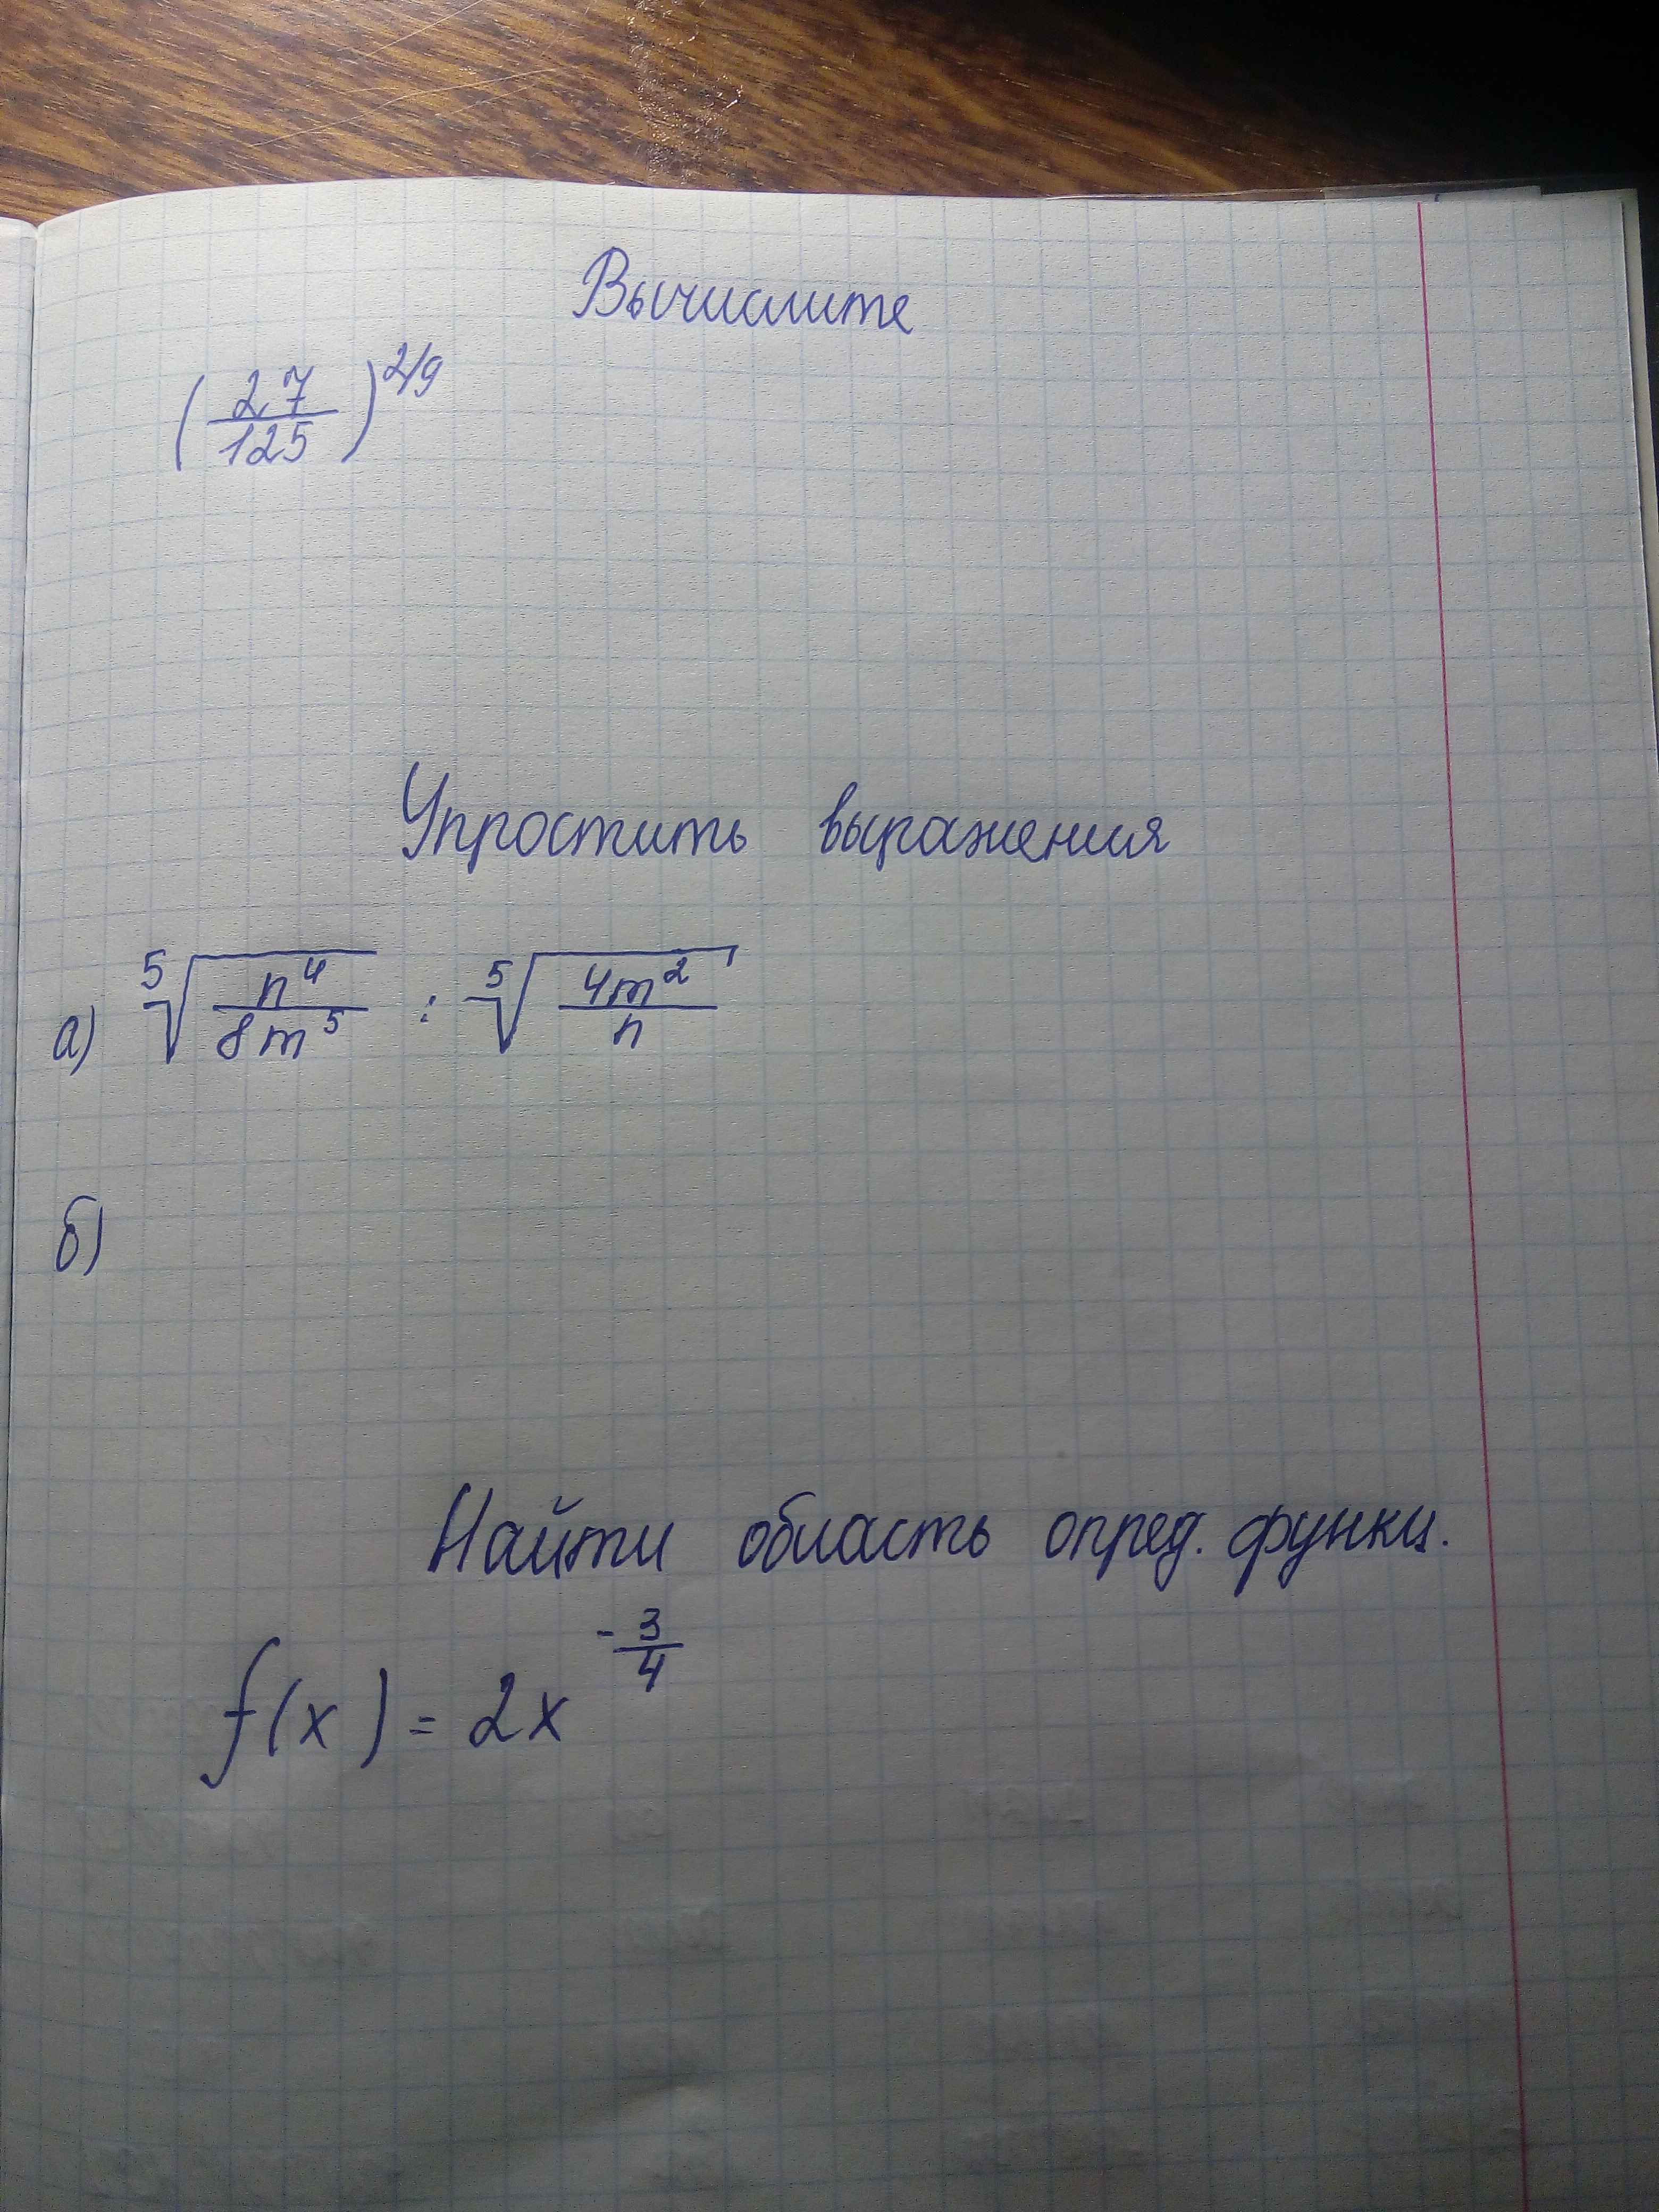 Вычислите
(27/125)^2/9
Упростить выражения
а) ⁵√(n⁴/8m⁵) : ⁵√(4m²/n)
б)
Найти область опред. функц.
f(x) = 2x^-3/4